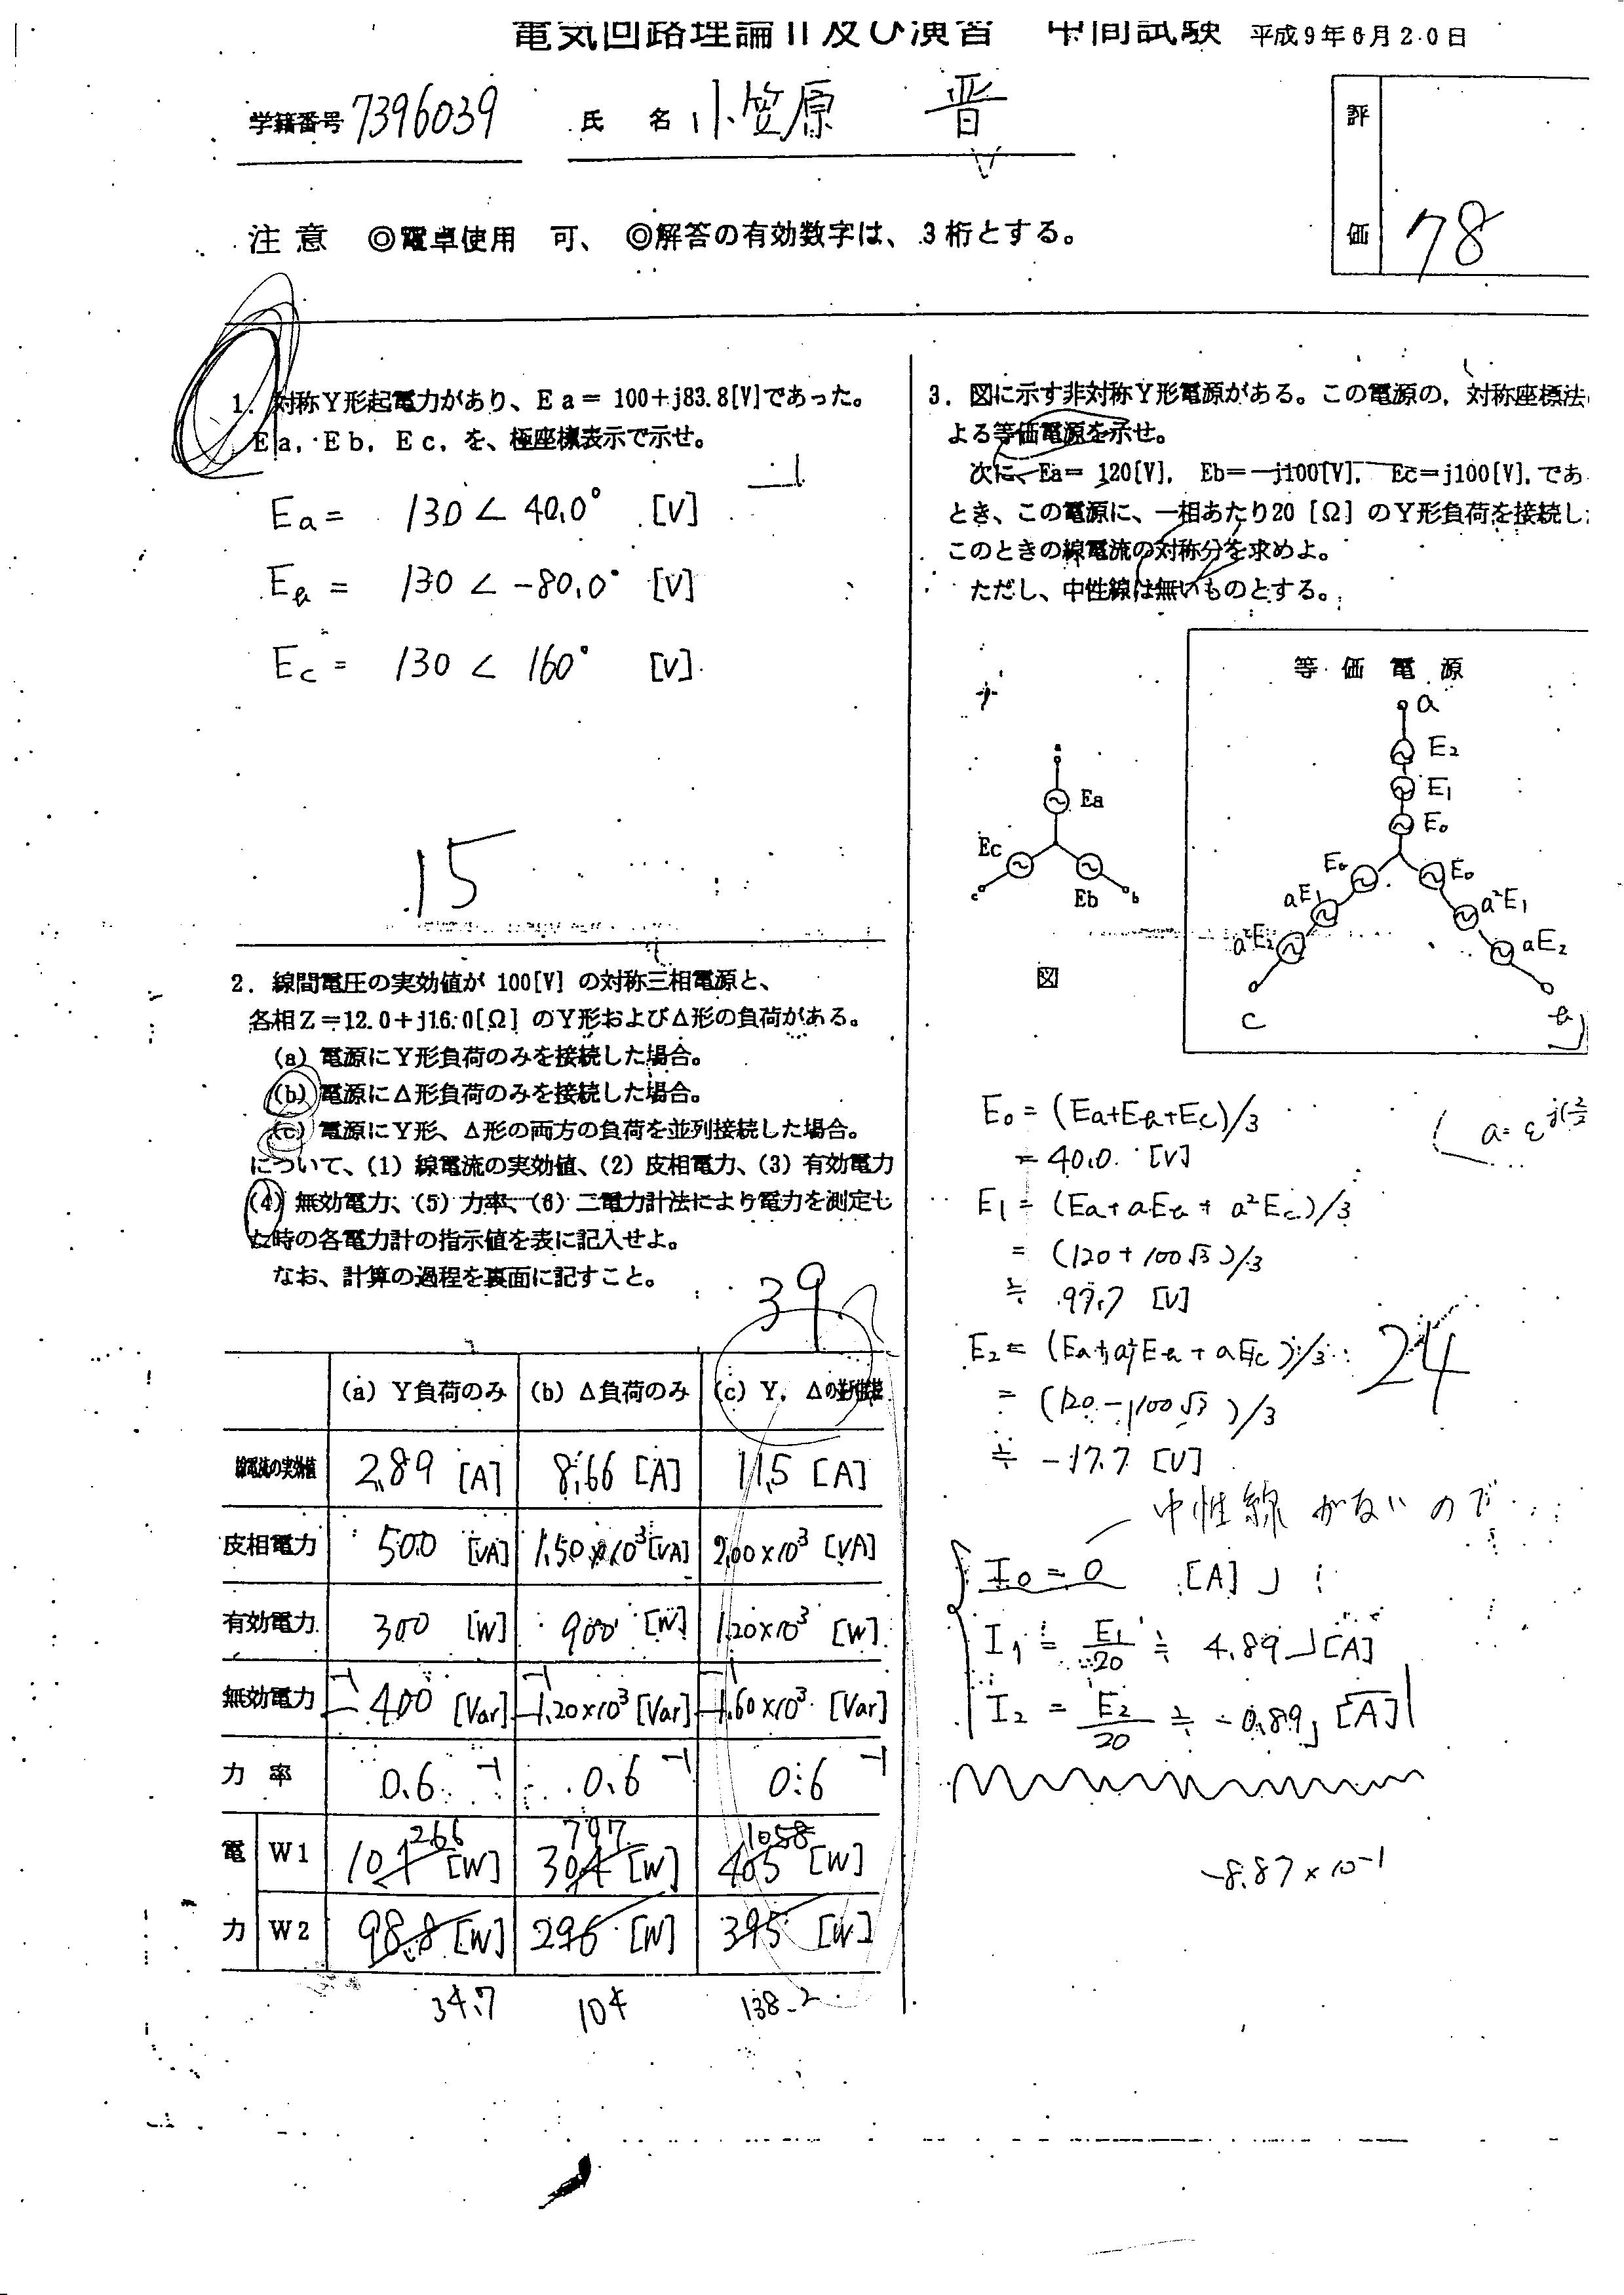 電気回路理論II及び演習 中間試験 平成9年6月20日
学籍番号 7396039 氏 名 小笠原 晋
評
価
78
注意 ◎電卓使用 可、 ◎解答の有効数字は、3桁とする。
1. 対称Y形起電力があり、Ea= 100+j83.8[V]であった。
Ea, Eb, Ec, を、極座標表示で示せ。
Ea = 130 ∠ 40.0° [V]
Eb = 130 ∠ -80.0° [V]
Ec = 130 ∠ 160° [V]
-1
15
2. 線間電圧の実効値が 100[V] の対称三相電源と、
各相Z=12.0+j16.0[Ω] のY形およびΔ形の負荷がある。
(a) 電源にY形負荷のみを接続した場合。
(b) 電源にΔ形負荷のみを接続した場合。
(c) 電源にY形、Δ形の両方の負荷を並列接続した場合。
について、(1) 線電流の実効値、(2) 皮相電力、(3) 有効電力
(4) 無効電力、(5) 力率、(6) 二電力計法により電力を測定し
た時の各電力計の指示値を表に記入せよ。
なお、計算の過程を裏面に記すこと。
39
(a) Y負荷のみ (b) Δ負荷のみ (c) Y, Δの
線電流の実効値 2.89 [A] 8.66 [A] 11.5 [A]
皮相電力 500 [VA] 1.50×10³ [VA] 2.00×10³ [VA]
有効電力 300 [W] 900 [W] 1.20×10³ [W]
無効電力 -400 [Var] -1.20×10³ [Var] -1.60×10³ [Var]
-1 -1 -1
力 率 0.6 -1 0.6 -1 0.6 -1
266 797 1058
電 W1 101 [W] 304 [W] 405 [W]
力 W2 98.8 [W] 296 [W] 395 [W]
34.7 104 138.2
3. 図に示す非対称Y形電源がある。この電源の, 対称座標法
よる等価電源を示せ。
次に、Ea= 120[V], Eb=-j100[V], Ec=j100[V], であ
とき、この電源に、一相あたり20 [Ω] のY形負荷を接続し
このときの線電流の対称分を求めよ。
ただし、中性線は無いものとする。
a
Ea
Ec
Eb
c
b
図
等 価 電 源
a
E₂
E₁
E₀
E₀ E₀
aE₁ a²E₁
a²E₂ aE₂
c b
E₀ = (Ea+Eb+Ec)/3
= 40.0 [V]
E₁ = (Ea+aEb+a²Ec)/3
= (120+100√3)/3
≒ 97.7 [V]
E₂ = (Ea+a²Eb+aEc)/3
= (120-100√3)/3
≒ -17.7 [V]
24
中性線がないので
I₀ = 0 [A]
I₁ = E₁/20 ≒ 4.89 [A]
I₂ = E₂/20 ≒ -0.89 [A]
-8.87×10⁻¹